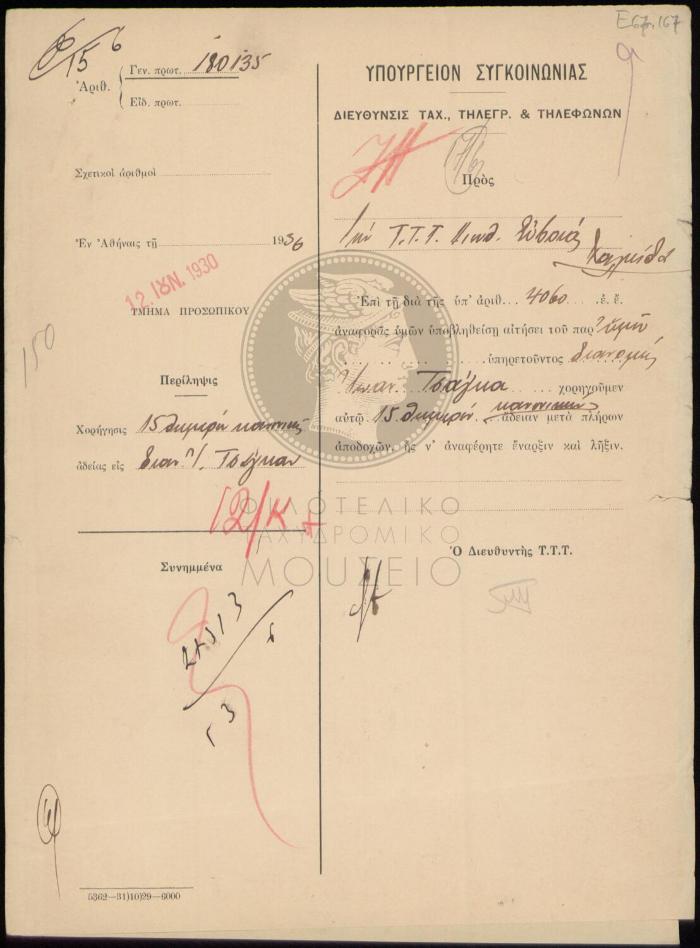 Εφ. 167
9
15/6
Ἀριθ.
Γεν. πρωτ. 180135
Εἰδ. πρωτ.
Σχετικοὶ ἀριθμοὶ
Ἐν Ἀθήναις τῇ 1936
12 ΙΟΥΝ. 1930
ΤΜΗΜΑ ΠΡΟΣΩΠΙΚΟΥ
150
Περίληψις
Χορήγησις 15θημέρου κανονικῆς
ἀδείας εἰς διαν. Ι. Τσάγκαν
12/Κ
Συνημμένα
5362—31)10)29—6000
ΥΠΟΥΡΓΕΙΟΝ ΣΥΓΚΟΙΝΩΝΙΑΣ
ΔΙΕΥΘΥΝΣΙΣ ΤΑΧ., ΤΗΛΕΓΡ. & ΤΗΛΕΦΩΝΩΝ
Πρὸς
Τὴν Τ.Τ.Τ. Εὐβοίας
Χαλκίδα
Ἐπὶ τῇ διὰ τῆς ὑπ' ἀριθ. 4060 ἐ. ἔ.
ἀναφορᾶς ὑμῶν ὑποβληθείσῃ αἰτήσει τοῦ παρ' ὑμῖν
ὑπηρετοῦντος διανομέως
Ἰωαν. Τσάγκα χορηγοῦμεν
αὐτῷ 15θήμερον κανονικὴν
ἄδειαν μετὰ πλήρων
ἀποδοχῶν, ἧς ν' ἀναφέρητε ἔναρξιν καὶ λῆξιν.
Ὁ Διευθυντὴς Τ.Τ.Τ.
ΦΙΛΟΤΕΛΙΚΟ
ΤΑΧΥΔΡΟΜΙΚΟ
ΜΟΥΣΕΙΟ